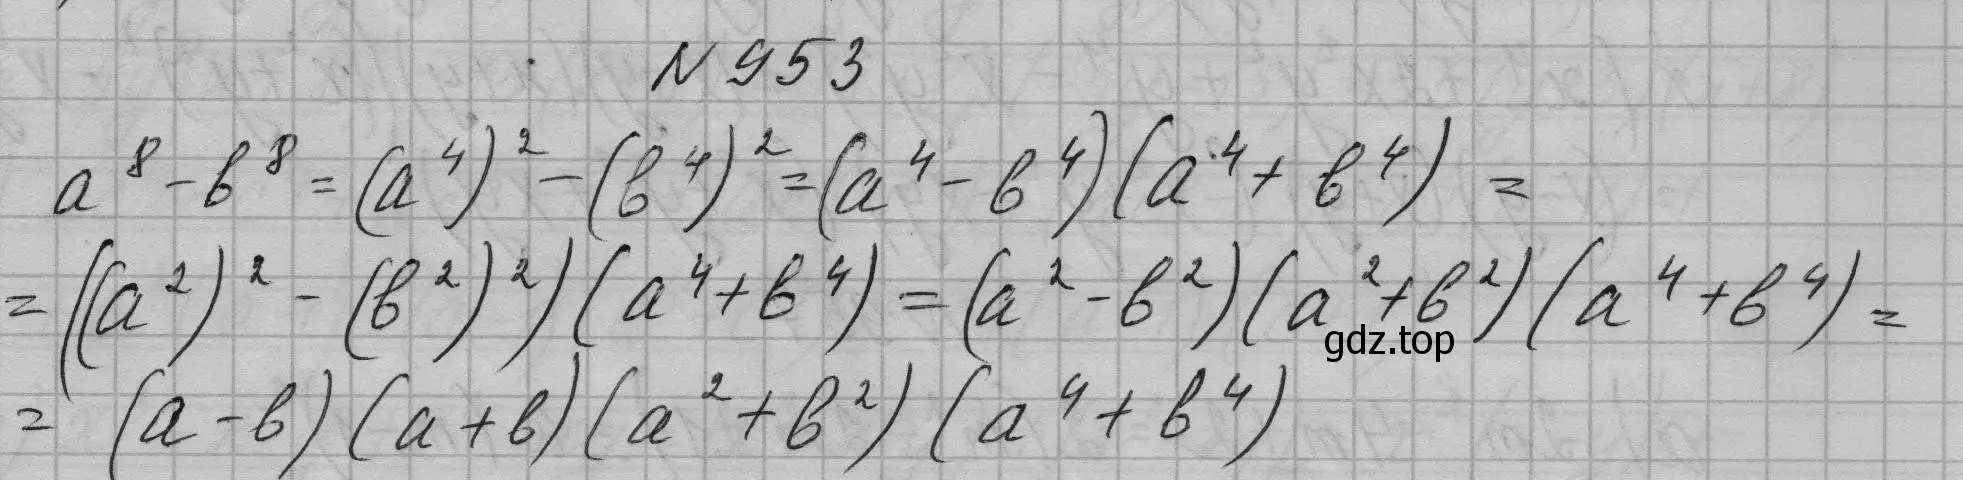 N 953
a⁸ - b⁸ = (a⁴)² - (b⁴)² = (a⁴ - b⁴)(a⁴ + b⁴) =
= ((a²)² - (b²)²)(a⁴ + b⁴) = (a² - b²)(a² + b²)(a⁴ + b⁴) =
gdz.top
= (a - b)(a + b)(a² + b²)(a⁴ + b⁴)